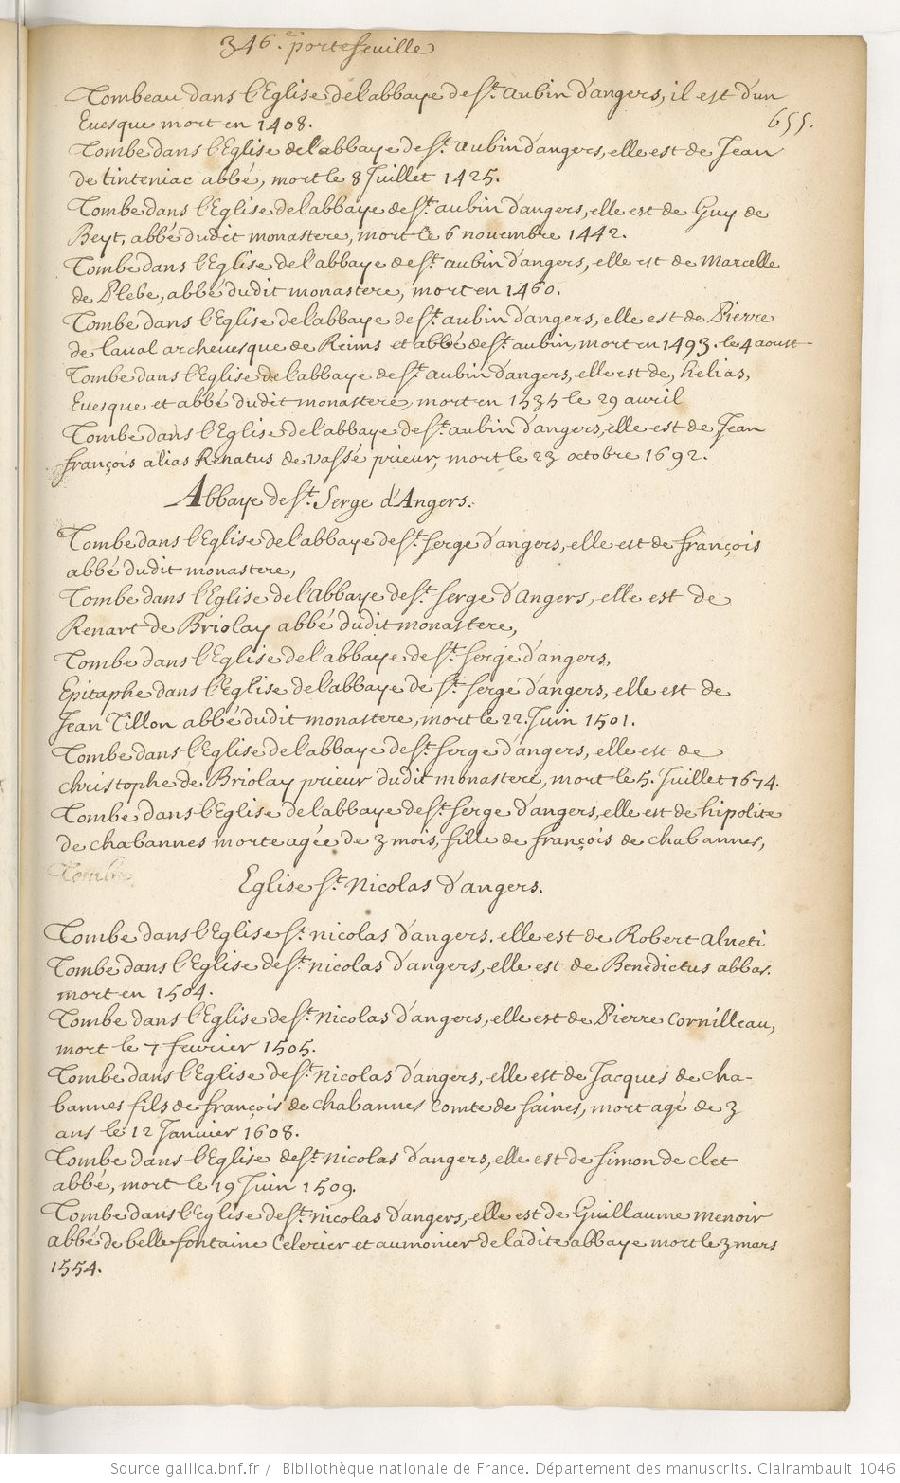 346.e portefeuille
655.
Tombeau dans l'Eglise de l'abbaye de St. aubin d'angers, il est d'un
Euesque mort en 1408.
Tombe dans l'Eglise de l'abbaye de St. aubin d'angers, elle est de Jean
de tinteniac abbé, mort le 8 Juillet 1425.
Tombe dans l'Eglise de l'abbaye de St. aubin d'angers, elle est de Guy de
Beyt, abbé dudit monastere, mort le 6 nouembre 1442.
Tombe dans l'Eglise de l'abbaye de St. aubin d'angers, elle est de Marcelle
de Plebe, abbé dudit monastere, mort en 1460.
Tombe dans l'Eglise de l'abbaye de St. aubin d'angers, elle est de Pierre
de laual archeuesque de Reims et abbé de St. aubin, mort en 1493. le 4 aoust
Tombe dans l'Eglise de l'abbaye de St. aubin d'angers, elle est de, helias,
Euesque et abbé dudit monastere, mort en 1535 le 29 avril
Tombe dans l'Eglise de l'abbaye de St. aubin d'angers, elle est de Jean
françois alias Renatus de vassé prieur, mort le 23 octobre 1692.
Abbaye de St. Serge d'Angers.
Tombe dans l'Eglise de l'abbaye de St. serge d'angers, elle est de françois
abbé dudit monastere,
Tombe dans l'Eglise de l'Abbaye de St. serge d'Angers, elle est de
Renart de Briolay abbé dudit monastere,
Tombe dans l'Eglise de l'abbaye de St. serge d'angers,
Epitaphe dans l'Eglise de l'abbaye de St. serge d'angers, elle est de
Jean Tillon abbé dudit monastere, mort le 22. Juin 1501.
Tombe dans l'Eglise de l'abbaye de St. serge d'angers, elle est de
christophe de Briolay prieur dudit monastere, mort le 5. Juillet 1674.
Tombe dans l'Eglise de l'abbaye de St. serge d'angers, elle est de hipolite
de chabannes morte agée de 3 mois, fille de françois de chabannes,
Tombe
Eglise St. Nicolas d'angers.
Tombe dans l'Eglise St. nicolas d'angers, elle est de Robert alueti
Tombe dans l'Eglise de St. nicolas d'angers, elle est de Benedictus abbas.
mort en 1504.
Tombe dans l'Eglise de St. Nicolas d'angers, elle est de Pierre Cornilleau,
mort le 7 feurier 1505.
Tombe dans l'Eglise de St. Nicolas d'angers, elle est de Jacques de cha-
bannes fils de françois de chabannes Comte de saines, mort agé de 3
ans le 12 Januier 1608.
Tombe dans l'Eglise de St. Nicolas d'angers, elle est de simon de clet
abbé, mort le 19 Juin 1509.
Tombe dans l'Eglise de St. nicolas d'angers, elle est de Guillaume menoir
abbé de belle fontaine Celerier et aumonier de ladite abbaye mort le 3 mars
1554.
Source gallica.bnf.fr / Bibliothèque nationale de France. Département des manuscrits. Clairambault 1046